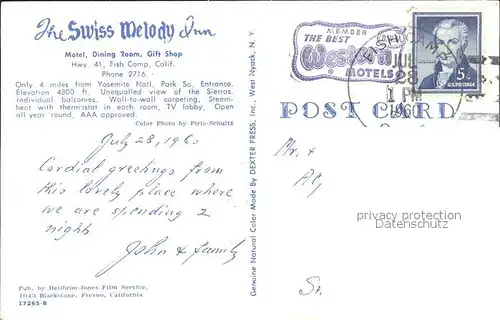 The Swiss Melody Inn
Motel, Dining Room, Gift Shop
Hwy. 41, Fish Camp, Calif.
Phone 2716
Only 4 miles from Yosemite Natl. Park So. Entrance.
Elevation 4800 ft. Unequalled view of the Sierras.
Individual balconies. Wall-to-wall carpeting, Steam-
heat with thermostat in each room, TV lobby. Open
all year round. AAA approved.
Color Photo by Pirie-Schultz
July 28, 1960
Cordial greetings from
this lovely place where
we are spending 2
nights
John & family
Pub. by Heilbron-Jones Film Service,
1045 Blackstone, Fresno, California
17265-B
Genuine Natural Color Made By DEXTER PRESS, Inc. West Nyack, N. Y.
MEMBER
THE BEST
Western
MOTELS
JUL
28
1 PM
1960
5¢
U.S. POSTAGE
POST CARD
Mr. &
privacy protection
Datenschutz